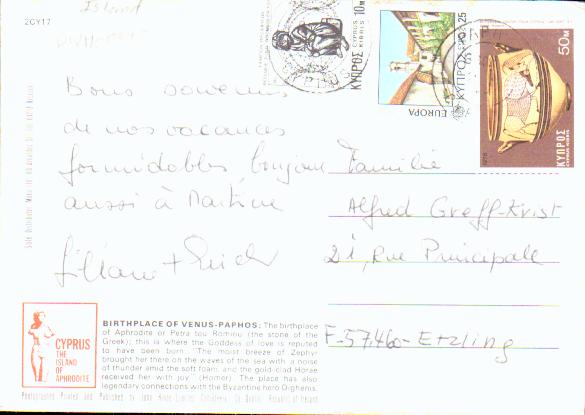 2CY17
Island
10M
ΚΥΠΡΟΣ
CYPRUS
KIBRIS
25
ΚΥΠΡΟΣ
EUROPA
50M
ΚΥΠΡΟΣ
CYPRUS KIBRIS
1976
Bons souvenirs
de nos vacances
formidables, bonjour
aussi à Martine
Liliane +
Familie
Alfred Greff-Krist
21, Rue Principale
F-57460-Etzling
CYPRUS
THE
ISLAND
OF
APHRODITE
BIRTHPLACE OF VENUS-PAPHOS: The birthplace
of Aphrodite or Petra tou Romiou (the stone of the
Greek); this is where the Goddess of love is reputed
to have been born. "The moist breeze of Zephyr
brought her there on the waves of the sea with a noise
of thunder amid the soft foam, and the gold-clad Horae
received her with joy" (Homer). The place has also
legendary connections with the Byzantine hero Dighenis.
Photographed Printed and Published by John Hinde Limited, Republic of Ireland